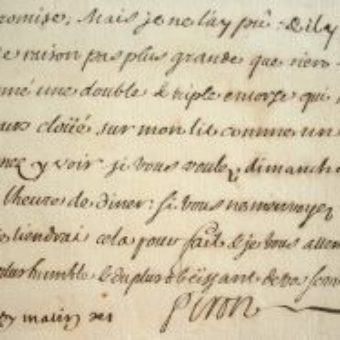 promise, Mais je ne l'ay pû: & il y
e raison pas plus grande que rien
mé une double & triple entorse qui
urs cloüé sur mon lit comme un
y voir si vous voulez, dimanche
l'heure de diner: si vous ne m'envoyez
tiendrai cela pour fait & je vous atten
plus humble & du plus obëissant de vos serv
Piron
matin